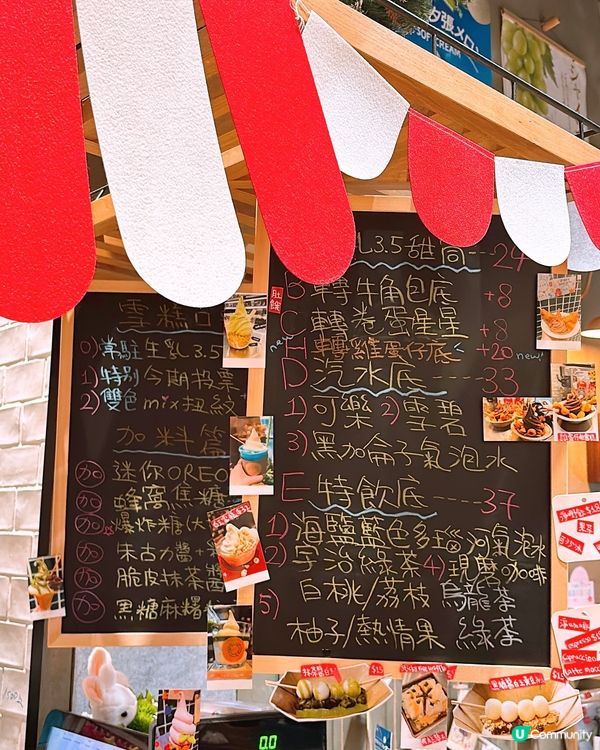 夕張メロ
SOFT CREAM
雪糕口
0) 常駐 生乳3.5
1) 特別 今期投票
2) 雙色 mix扭紋
加料篇
加 迷你OREO
加 蜂窩焦糖
加 爆炸糖
加 朱古力醬
加 脆皮抹茶醬
加 黑糖麻糬
3.5甜筒---24
B 轉牛角包底 +8
C 轉卷蛋星星 +8
new H 轉雞蛋仔底 +20 new!
D 汽水底----33
1) 可樂 2) 雪碧
3) 黑加侖子氣泡水
E 特飲底----37
1) 海鹽藍色多瑙河氣泡水
2) 宇治綠茶 4) 現磨咖啡
5) 白桃/荔枝 烏龍茶
柚子/熱情果 綠茶
0.0
U Community